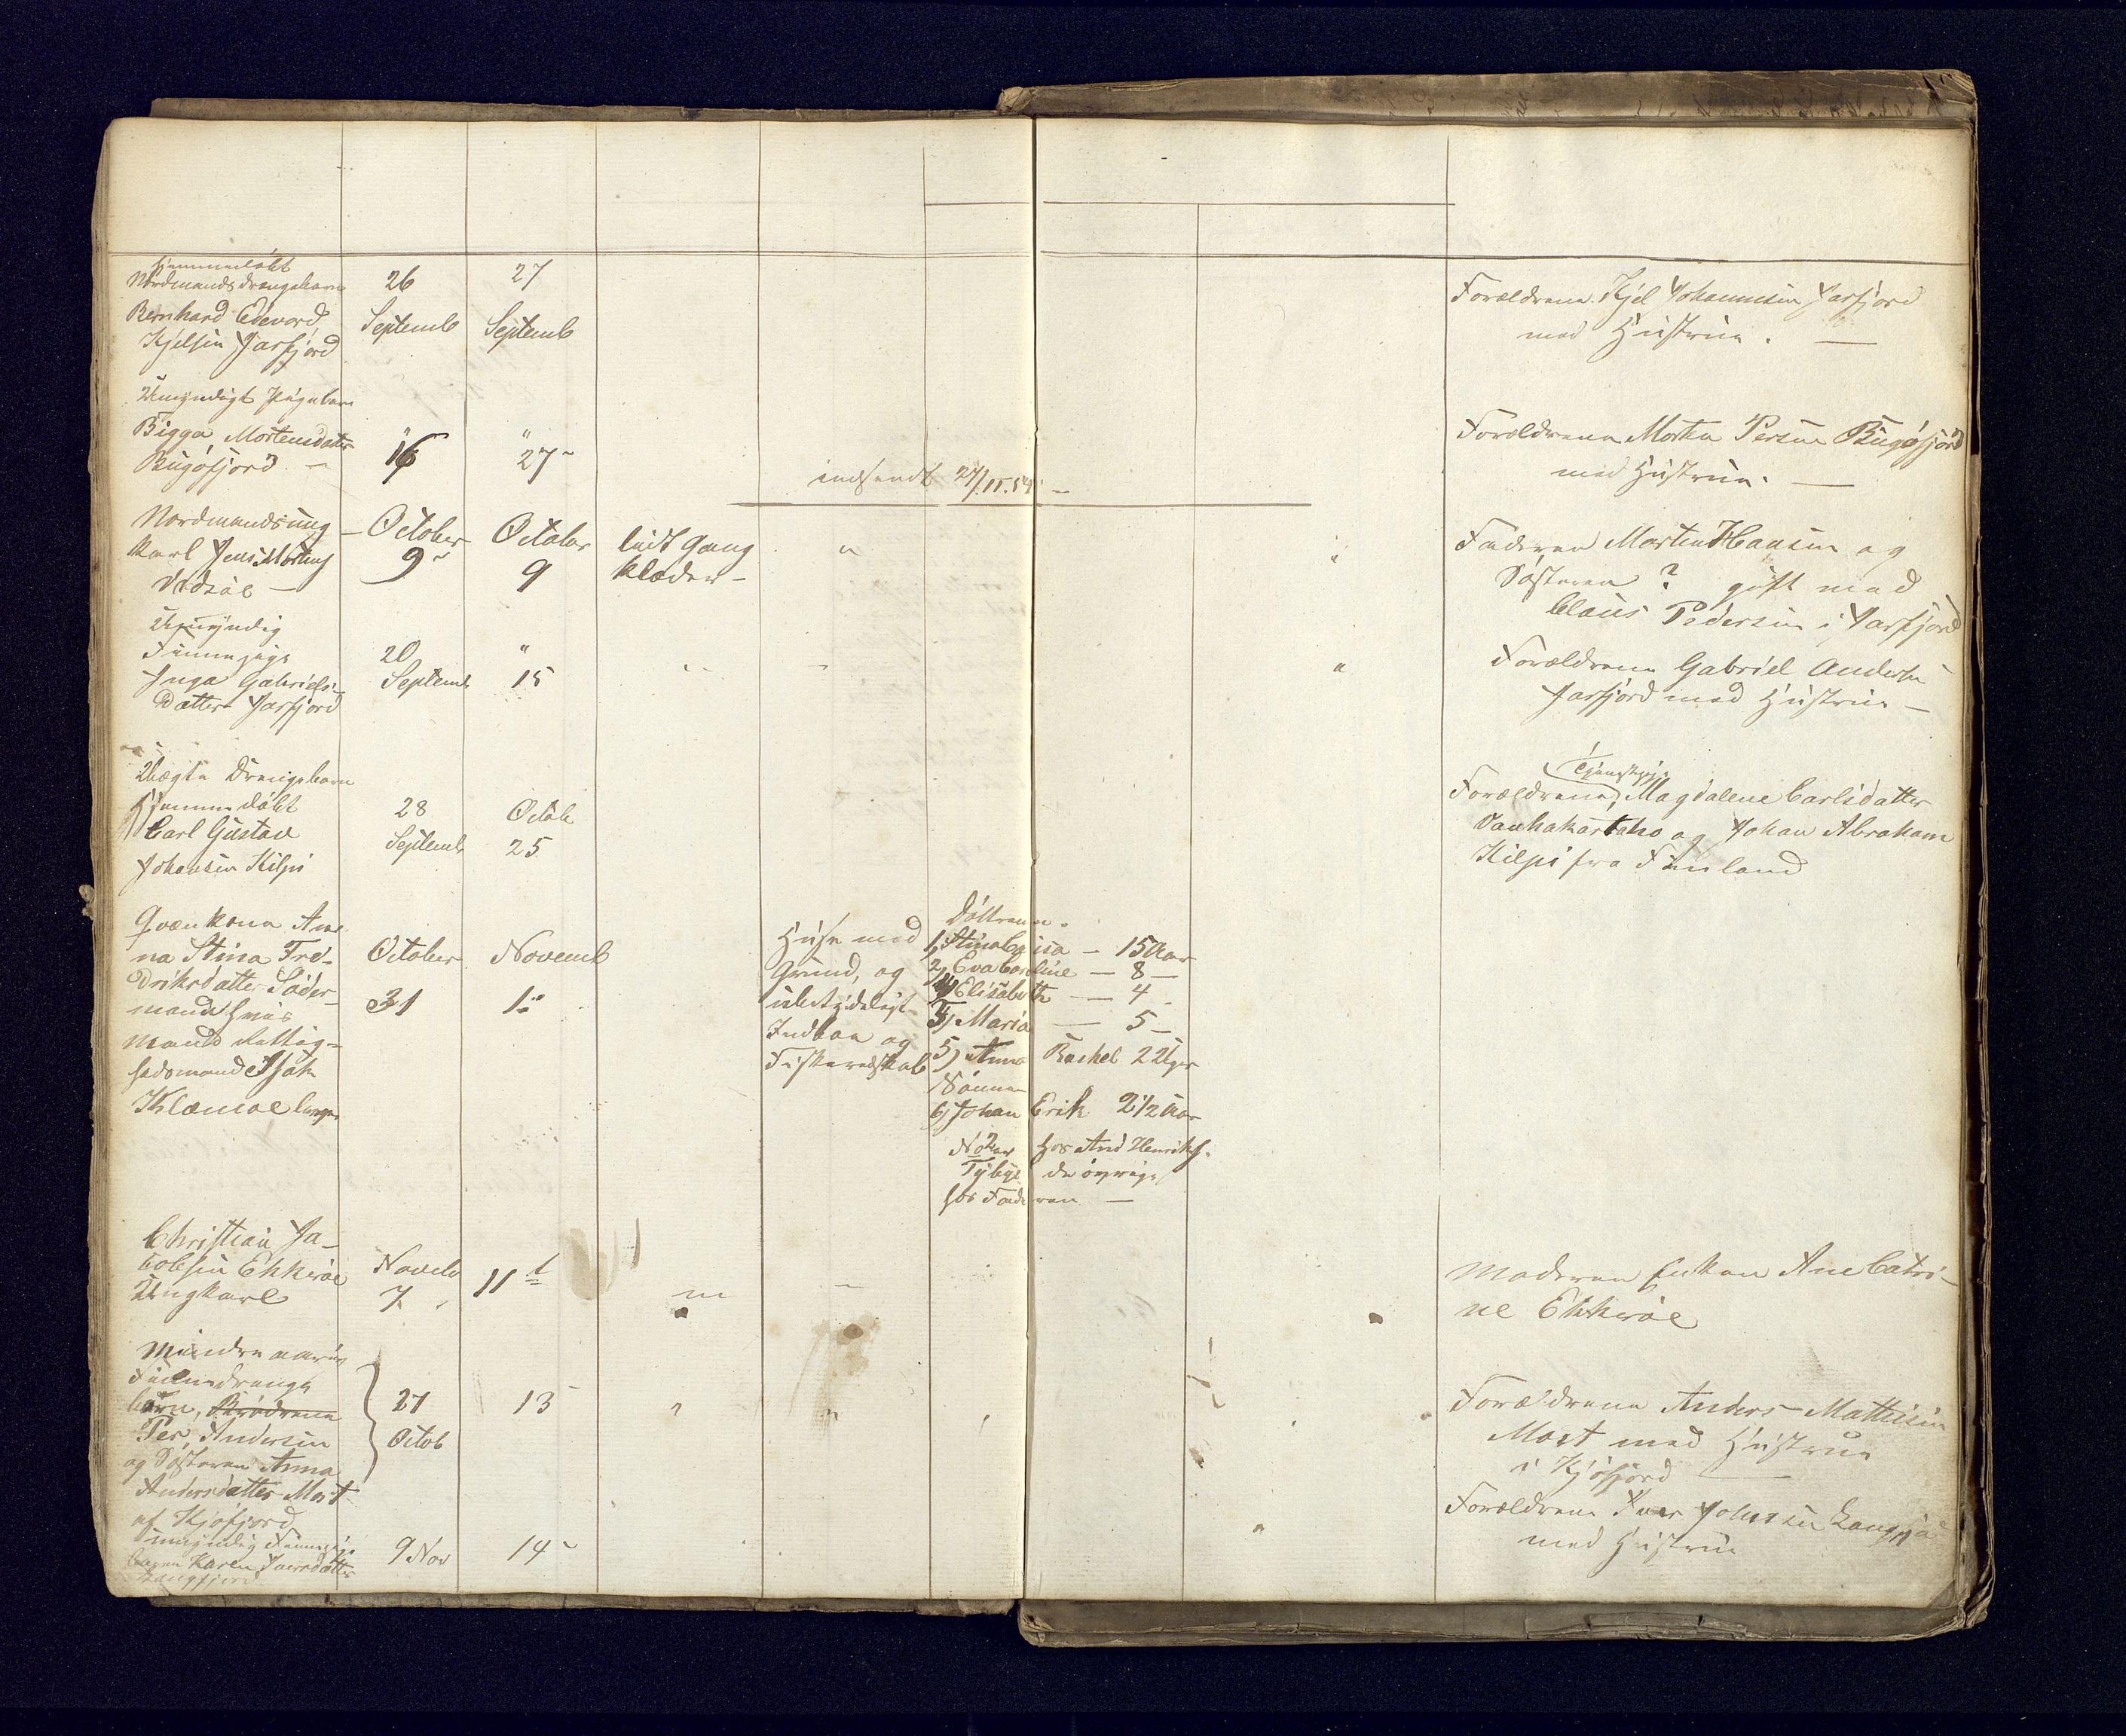 Hjemmedøbt
Nordmands drengebarn
Bernhard Edevard
Kjelsen Jarfjord
26
Septemb
27
Septemb
Forældrene Kjel Johannesen Jarfjord
med Hustrue. —
Umyndigt Pigebarn
Bigga Mortensdatter
Bugøfjord. —
"
16
"
27
indsendt 27/11.54 —
Forældrene Morten Persen Bugøfjord
med Hustrue. —
Nordmandsung-
karl Jens Mortens
Vadsøe —
October
9
October
9
lidt Gang
klæder —
"
"
Faderen Morten Hansen og
Søsteren ? gift med
Claus Pedersen i Jarfjord
Umyndig
Finnepige
Inga Gabriels-
Datter Jarfjord
20
Septemb
"
15
"
Forældrene Gabriel Anders
Jarfjord med Hustrue —
Uægte Drengebarn
Hjemmedøbt
Carl Gustav
Johansen Kilpi
28
Septemb
Octob
25
Forældrene, Magdalene Carlsdatter
og Johan Abraham
Kilpi fra Finland
Qvænkone An-
na Stina Fre-
driksdatter Søder-
mand
mand Rettig-
hedsmand Isak
Klæmoe
October
31
Novemb
1
Huse med
Grund, og
ubetydeligt
Indboe og
Fiskeredskab
Døttrene.
1, Stina Caisa — 15 Aar
2, Eva Caroline — 8 —
4) Elisabeth — 4
3) Maria — 5 —
5) Anna Rachel 2 Uger
Sønnen
6) Johan Erik 2 1/2 Aar
No 2 er hos And Henriks.
Tybye de øvrige
hos Faderen —
Christian Ja-
cobsen Ekkerøe
Ungkarl
Novelb
7
11
Moderen Enken Ane Catri-
ne Ekkerøe
Mindreaarige
Finnedrenge
barn, Brødrene
Per Andersen
og Søsteren Anna
Andersdatter Mort
af Kjøfjord
27
Octob
13
"
"
Forældrene Anders Mathisen
Mort med Hustrue
i Kjøfjord —
Umyndig Finnepige
barn Karen Iversdatter
Langfjord
9 Nov
14
Forældrene Iver Johnsen Langfjo
med Hustrue